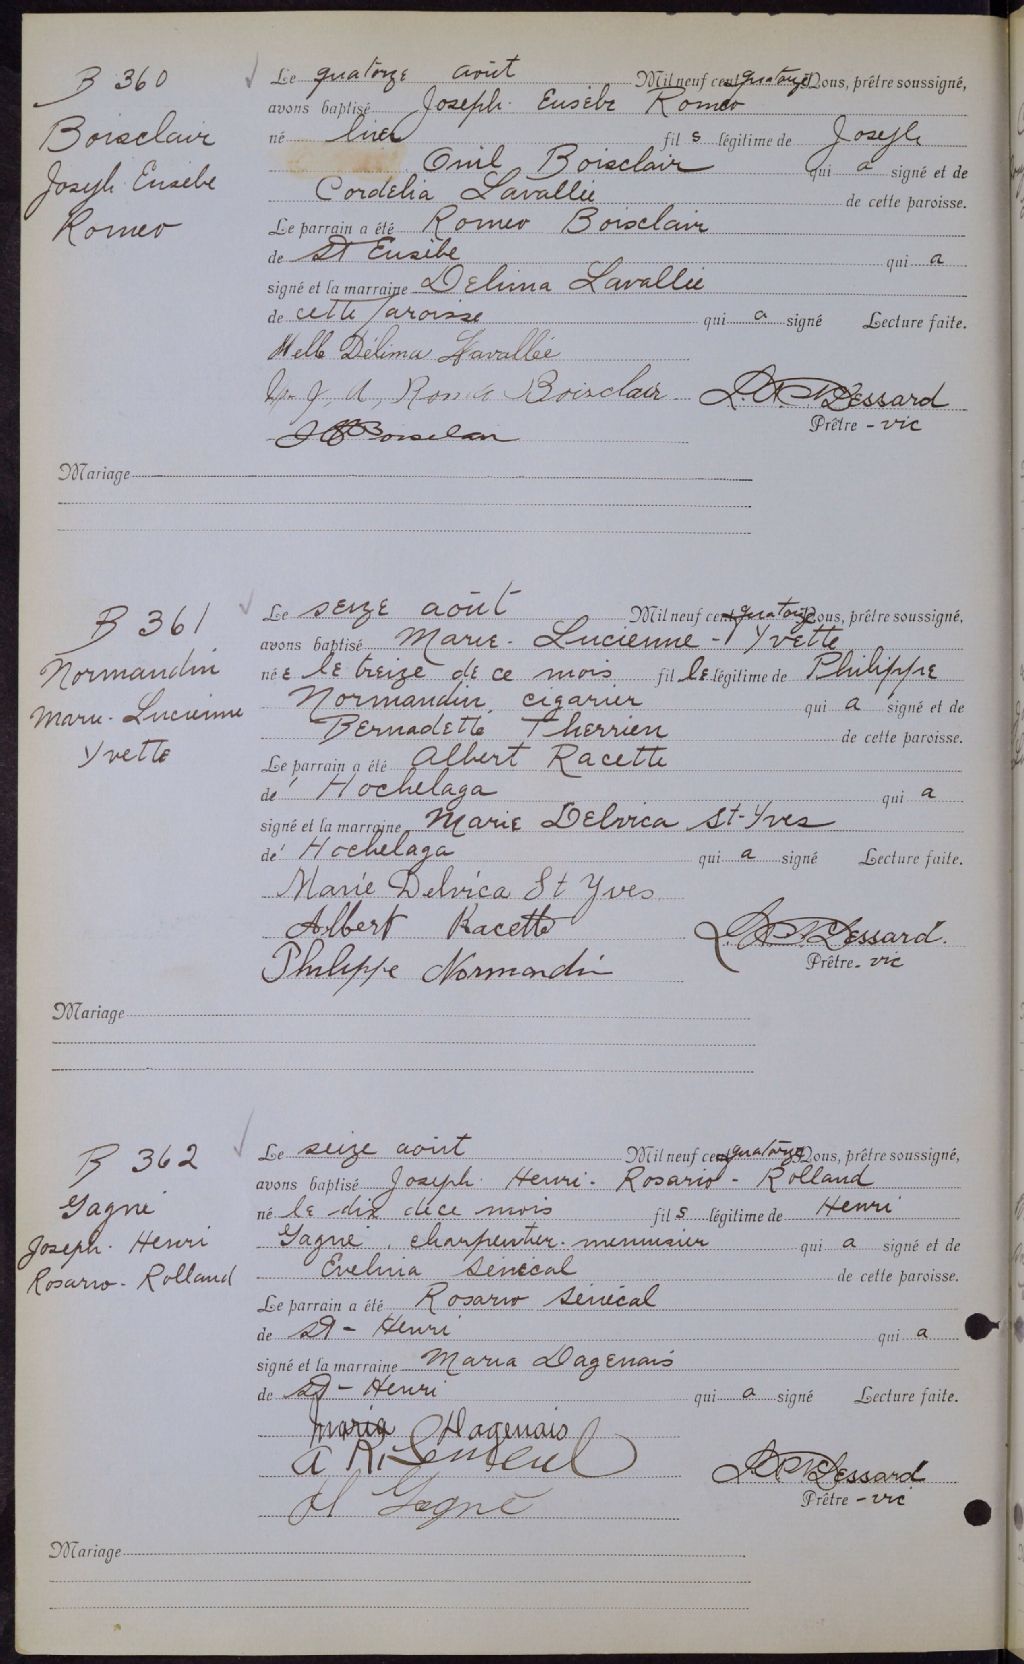 B 360
Boisclair
Joseph Eusèbe
Romeo
Le quatorze août Mil neuf cent quatorze Nous, prêtre soussigné,
avons baptisé Joseph Eusèbe Romeo
né hier fils légitime de Joseph
Omil Boisclair qui a signé et de
Cordelia Lavallée de cette paroisse.
Le parrain a été Romeo Boisclair
de St Eusèbe qui a
signé et la marraine Delima Lavallée
de cette Paroisse qui a signé Lecture faite.
Melle Délima Lavallée
Boisclair
Dessard
Prêtre - vic
Mariage
B 361
Normandin
Marie - Lucienne
Yvette
Le seize août Mil neuf cent quatorze Nous, prêtre soussigné,
avons baptisé Marie - Lucienne - Yvette
née le treize de ce mois fille légitime de Philippe
Normandin, cigarier qui a signé et de
Bernadette Therrien de cette paroisse.
Le parrain a été Albert Racette
de Hochelaga qui a
signé et la marraine Marie Delvica St-Yves
de Hochelaga qui a signé Lecture faite.
Marie Delvica St Yves
Albert Racette
Philippe Normandin
Dessard.
Prêtre - vic
Mariage
B 362
Gagné
Joseph - Henri
Rosario - Rolland
Le seize août Mil neuf cent quatorze Nous, prêtre soussigné,
avons baptisé Joseph Henri - Rosario - Rolland
né le dix de ce mois fils légitime de Henri
Gagné, charpentier-menuisier qui a signé et de
Evelina Sénécal de cette paroisse.
Le parrain a été Rosario Sénécal
de St - Henri qui a
signé et la marraine Maria Dagenais
de St - Henri qui a signé Lecture faite.
Maria Dagenais
A R. Senecal
H Gagné
Dessard
Prêtre - vic
Mariage